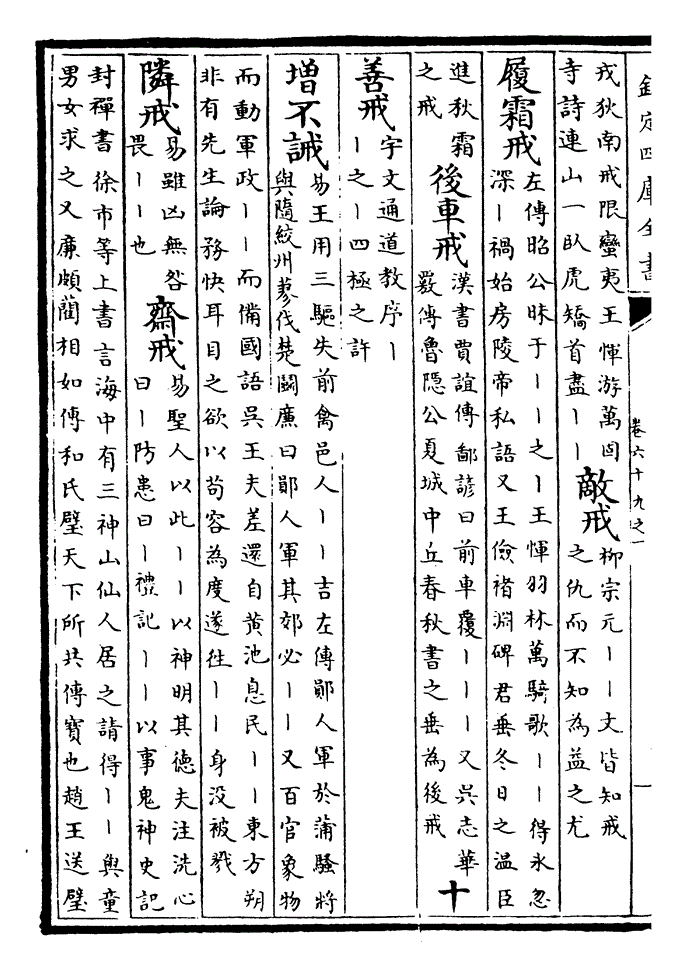 欽定四庫全書
卷六十九之一
戎狄南戒限蠻夷王惲游萬固
寺詩連山一臥虎矯首盡丨丨
敵戒
柳宗元丨丨文皆知戒
之仇而不知為益之尤
履霜戒
左傳昭公昧于丨丨之丨王惲羽林萬騎歌丨丨得永忽
深丨禍始房陵帝私語又王儉褚淵碑君垂冬日之温臣
進秋霜
之戒
後車戒
漢書賈誼傳鄙諺曰前車覆丨丨丨又吳志華
覈傳魯隱公夏城中丘春秋書之垂為後戒
十
善戒
宇文通道教序丨
丨之丨四極之許
增不誡
易王用三驅失前禽邑人丨丨吉左傳鄖人軍於蒲騷將
與隨絞州蓼伐楚鬭廉曰鄖人軍其郊必丨丨又百官象物
而動軍政丨丨而備國語吳王夫差還自黄池息民丨丨東方朔
非有先生論務快耳目之欲以苟容為度遂往丨丨身没被戮
隣戒
易雖凶無咎
畏丨丨也
齋戒
易聖人以此丨丨以神明其德夫注洗心
曰丨防患曰丨禮記丨丨以事鬼神史記
封禪書徐市等上書言海中有三神山仙人居之請得丨丨與童
男女求之又廉頗藺相如傳和氏璧天下所共傳寶也趙王送璧